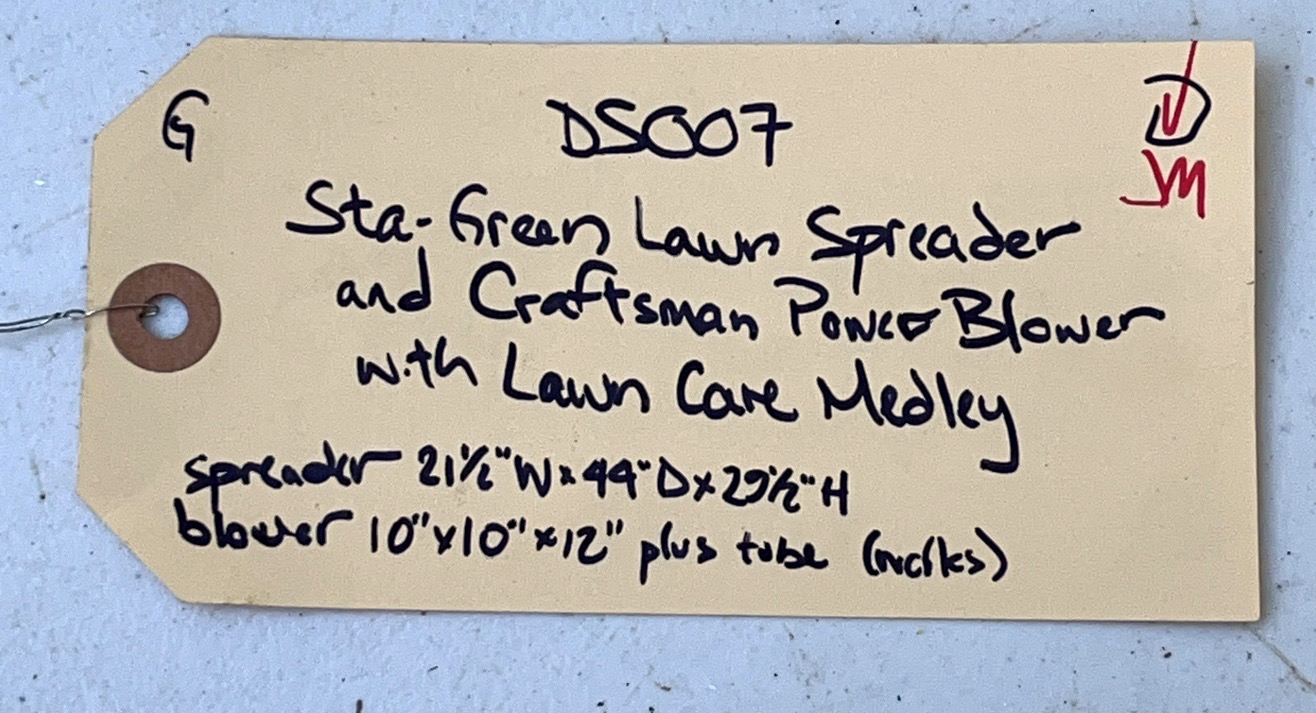 G DS007 D
JM
Sta-Green Lawn Spreader
and Craftsman Power Blower
with Lawn Care Medley
spreader 21½"W x 44"D x 29½"H
blower 10"x10"x12" plus tube (works)